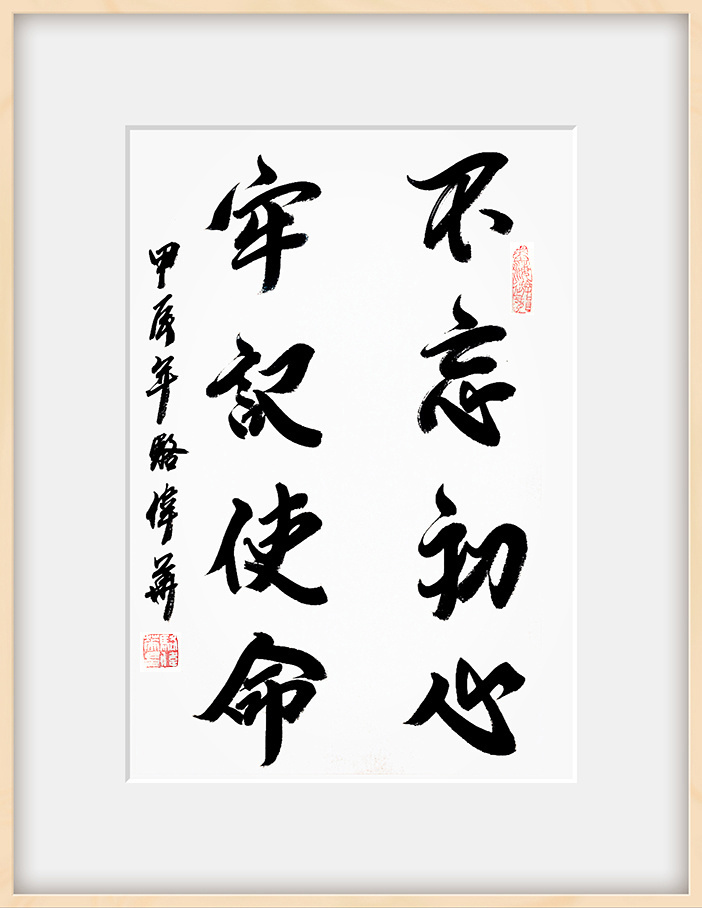 不忘初心
牢記使命
甲辰年駱偉華